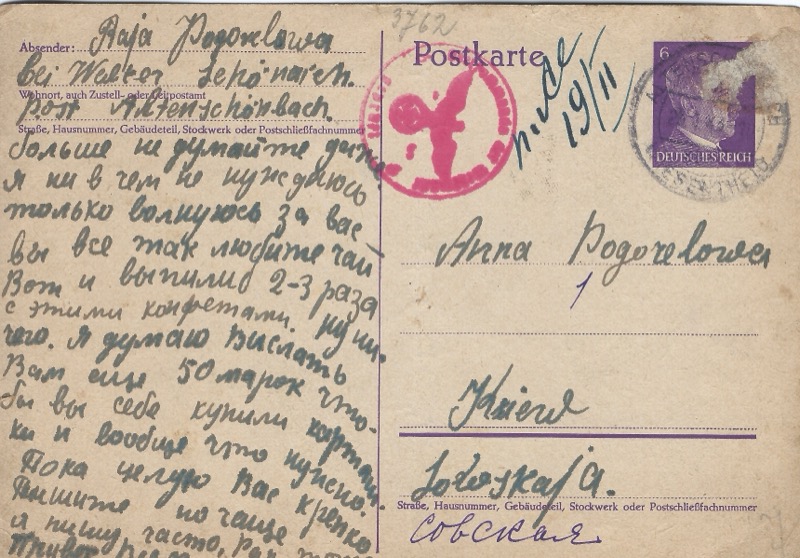 3762
Absender: Raja Pogorelowa
bei Walter Schönaich.
Wohnort, auch Zustell- oder Leitpostamt
Post Altenschönbach.
Straße, Hausnummer, Gebäudeteil, Stockwerk oder Postschließfachnummer
больше не думайте даже
я ни в чем не нуждаюсь
только волнуюсь за вас
вы все так любите чай
Вот и выпили 2-3 раза
с этими конфетами. Ну ни-
чего. Я думаю выслать
Вам еще 50 марок что-
бы вы себе купили картош
ки и вообще что нужно.
Пока целую Вас крепко
Пишите по чаще
я пишу часто,
Привет
Postkarte
19/II
6
DEUTSCHES REICH
Anna Pogorelowa
1
Kiew
Sowskaja.
Straße, Hausnummer, Gebäudeteil, Stockwerk oder Postschließfachnummer
Совская